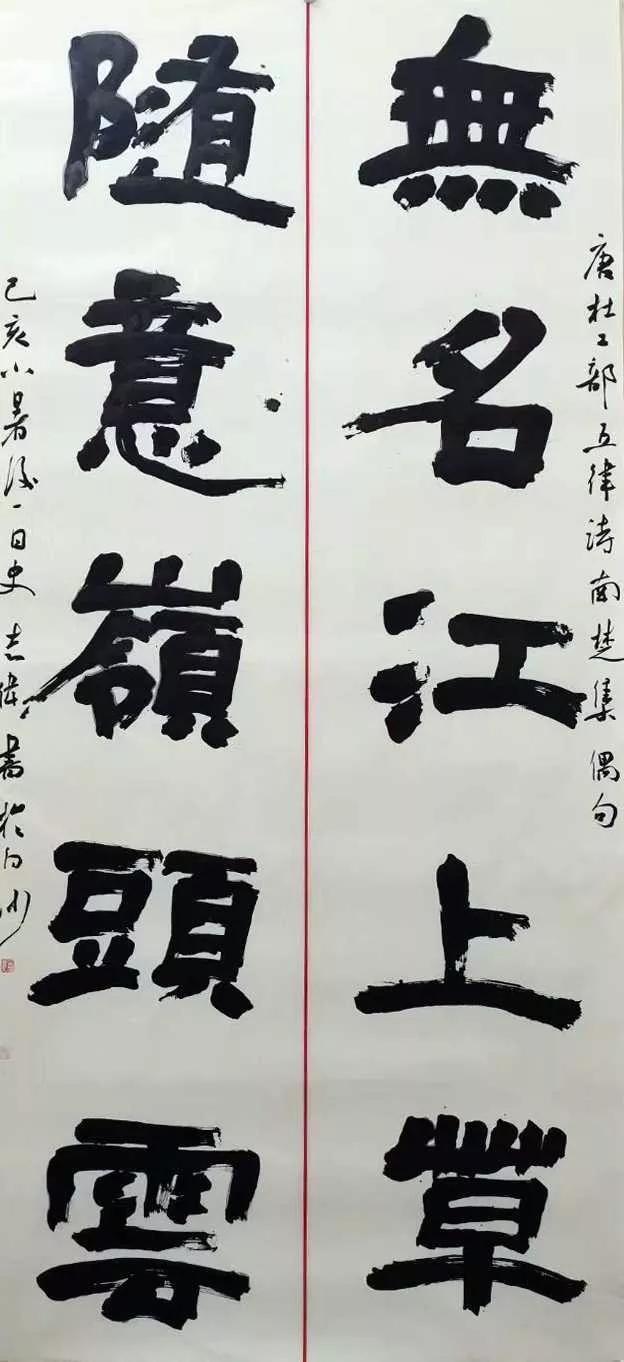 唐杜工部五律诗南楚集偶句
無名江上草
隨意嶺頭雲
己亥小暑後一日史志偉書於白沙